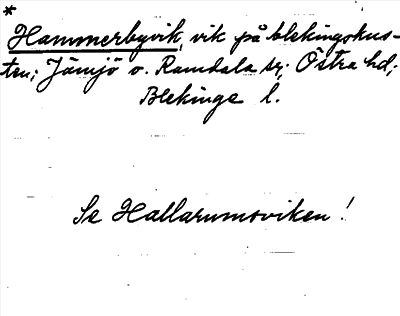 *
Hammerbyvik, vik på blekingskus-
ten; Jämjö o. Ramdala sr; Östra hd;
Blekinge l.
Se Hallarumsviken!